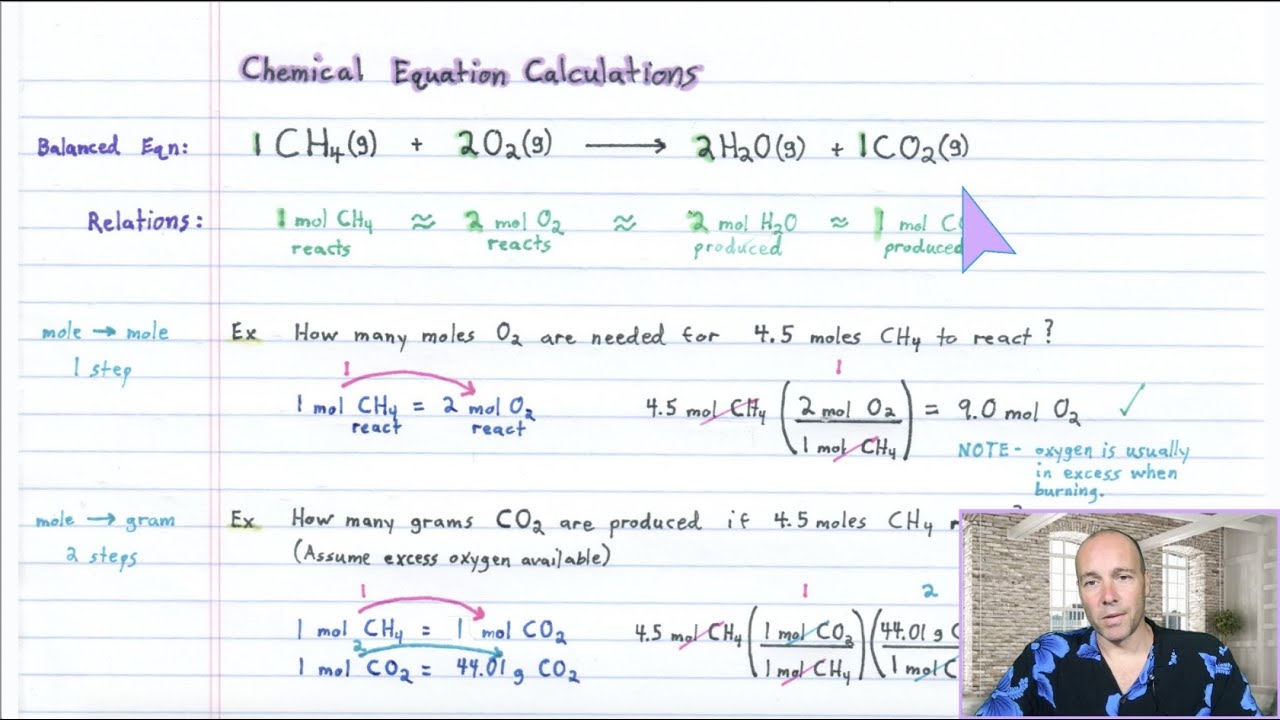 Chemical Equation Calculations
Balanced Eqn: 1 CH₄(g) + 2O₂(g) ⟶ 2H₂O(g) + 1CO₂(g)
Relations: 1 mol CH₄ ≈ 2 mol O₂ ≈ 2 mol H₂O ≈ 1 mol
reacts reacts produced produced
mole → mole
1 step
Ex How many moles O₂ are needed for 4.5 moles CH₄ to react?
1
1 mol CH₄ = 2 mol O₂
react react
1
4.5 mol CH₄ (2 mol O₂ / 1 mol CH₄) = 9.0 mol O₂ ✓
NOTE - oxygen is usually
in excess when
burning.
mole → gram
2 steps
Ex How many grams CO₂ are produced if 4.5 moles CH₄
(Assume excess oxygen available)
1
1 mol CH₄ = 1 mol CO₂
2
1 mol CO₂ = 44.01 g CO₂
1 2
4.5 mol CH₄ (1 mol CO₂ / 1 mol CH₄) (44.01 g / 1 mol